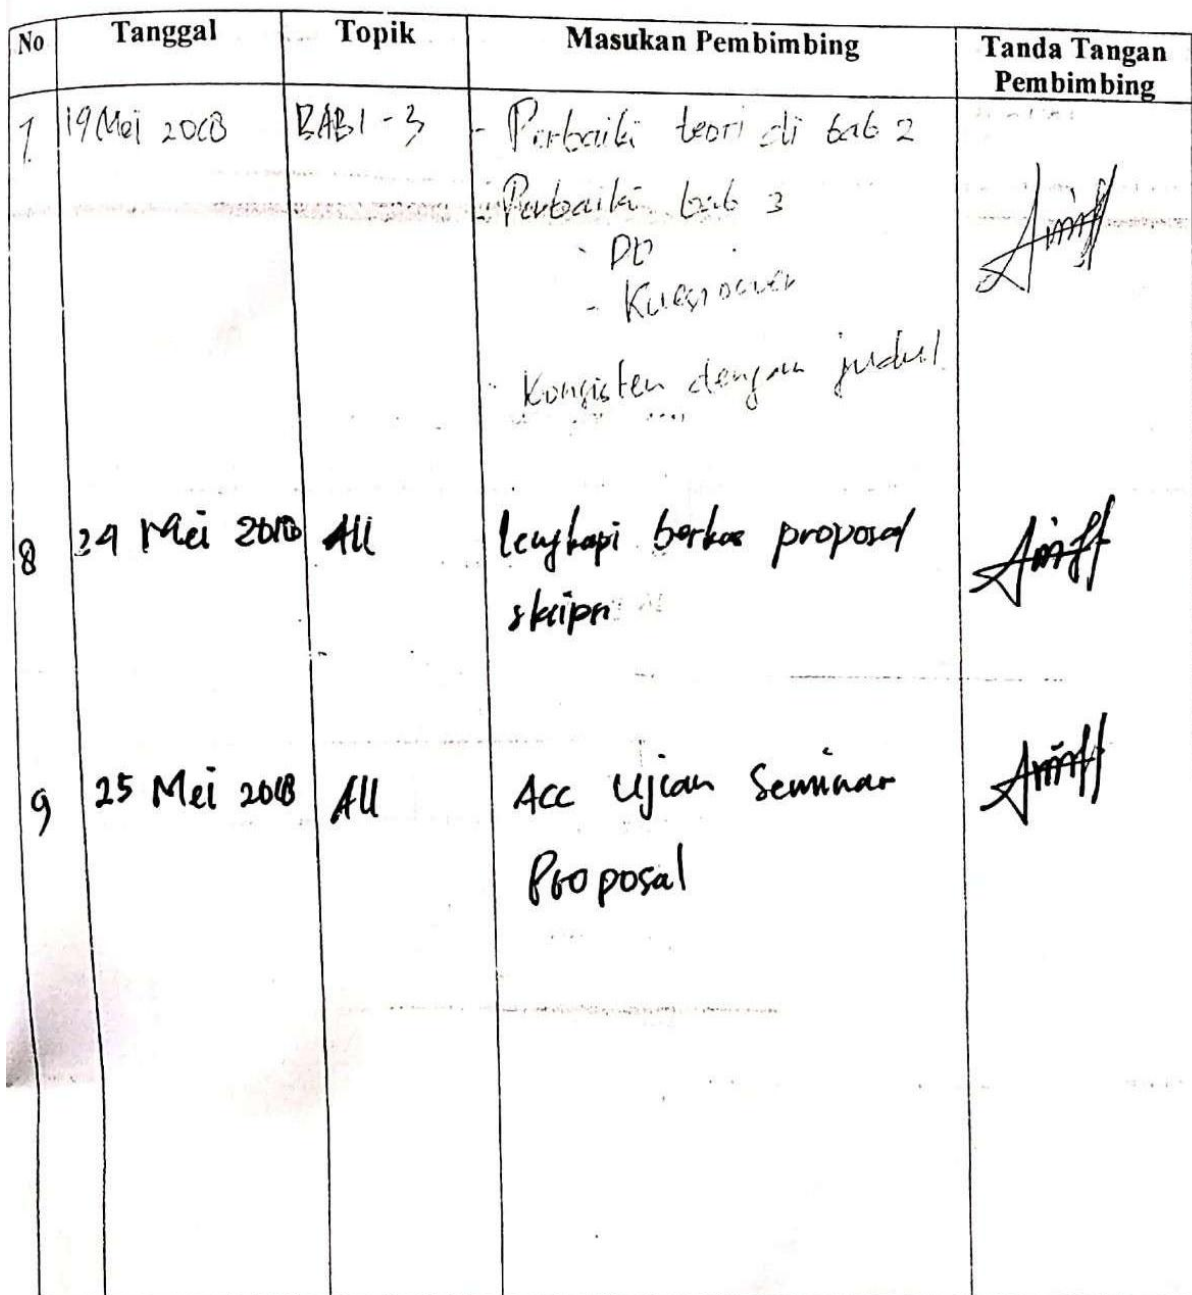 No Tanggal Topik Masukan Pembimbing Tanda Tangan
Pembimbing
7. 19 Mei 2018 BAB 1 - 3 - Perbaiki teori di bab 2
- Perbaiki bab 3
- DO
- Kuesioner
- Konsisten dengan judul
8 24 Mei 2018 All lengkapi berkas proposal
skripsi
9 25 Mei 2018 All Acc Ujian Seminar
Proposal